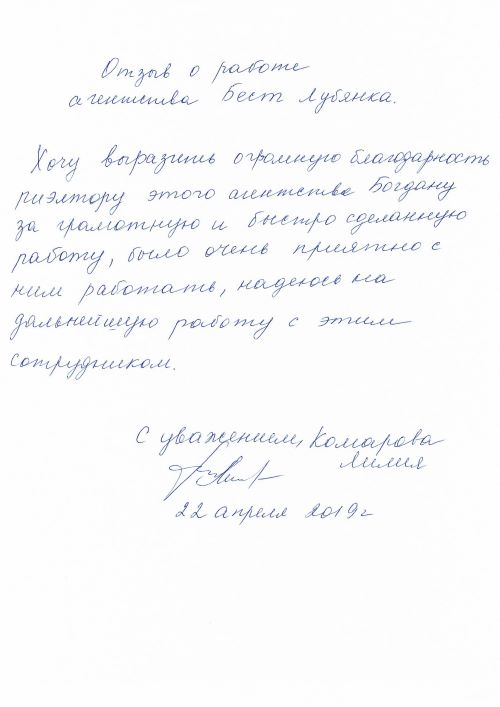 Отзыв о работе
агентства Бест Лубянка.
Хочу выразить огромную благодарность
риэлтору этого агентства Богдану
за грамотную и быстро сделанную
работу, было очень приятно с
ним работать, надеюсь на
дальнейшую работу с этим
сотрудником.
С уважением, Комарова
Лилия
22 апреля 2019г